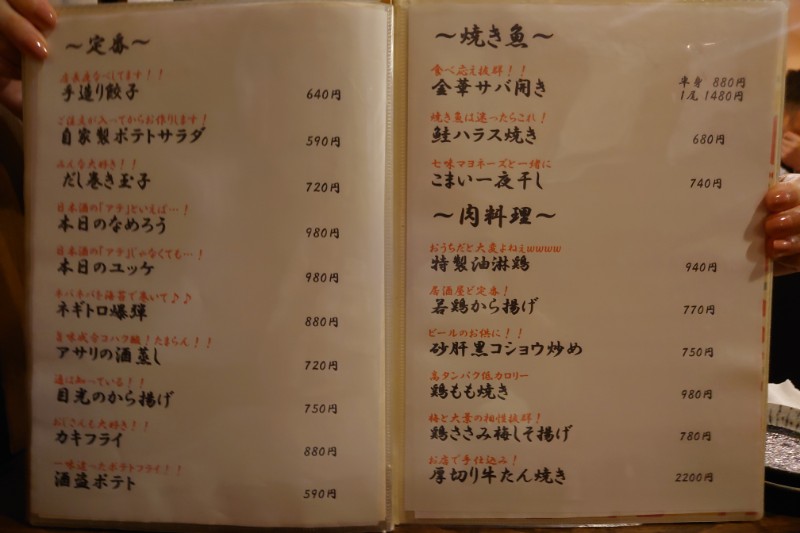 ～定番～
店長直々包んでます！！
手造り餃子 640円
ご注文が入ってからお作りします！
自家製ポテトサラダ 590円
みんな大好き！！
だし巻き玉子 720円
日本酒の「アテ」といえば…！
本日のなめろう 980円
日本酒の「アテ」じゃなくても…！
本日のユッケ 980円
ネバネバを海苔で巻いて♪♪
ネギトロ爆弾 880円
旨味成分コハク酸！たまらん！！
アサリの酒蒸し 720円
通は知っている！！
目光のから揚げ 750円
おじさんも大好き！！
カキフライ 880円
一味違ったポテトフライ！！
酒盗ポテト 590円
～焼き魚～
食べ応え抜群！！
金華サバ開き 半身 880円
1尾 1480円
焼き魚は迷ったらこれ！
鮭ハラス焼き 680円
七味マヨネーズと一緒に
こまい一夜干し 740円
～肉料理～
おうちだと大変よねぇwwww
特製油淋鶏 940円
居酒屋ど定番！
若鶏から揚げ 770円
ビールのお供に！！
砂肝黒コショウ炒め 750円
高タンパク低カロリー
鶏もも焼き 980円
梅と大葉の相性抜群！
鶏ささみ梅しそ揚げ 780円
お店で手仕込み！
厚切り牛たん焼き 2200円